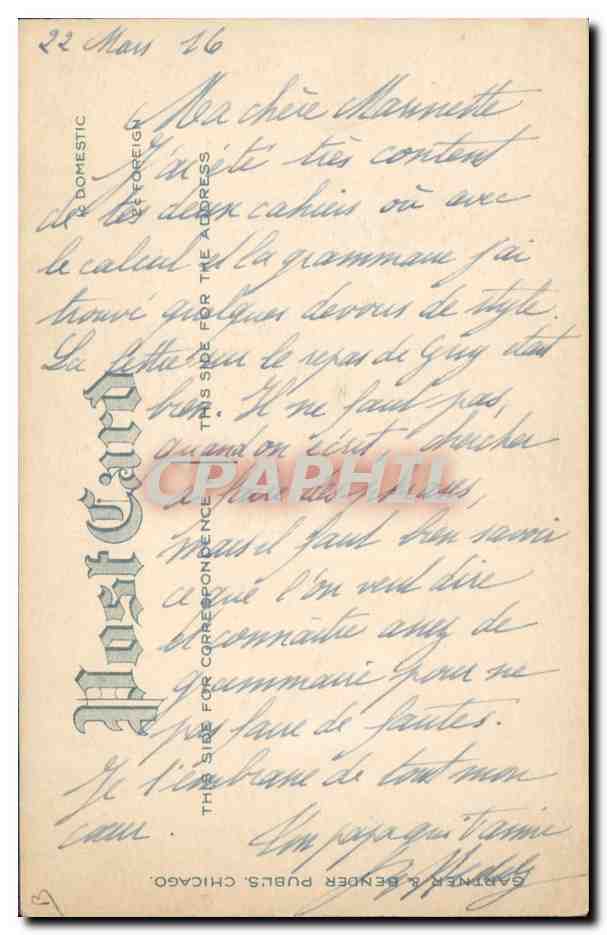 22 Mars 16
Ma chère Marinette
J'ai été très content
de tes deux cahiers où avec
le calcul et la grammaire j'ai
trouvé quelques devoirs de style.
La lettre sur le repas de Guy était
bien. Il ne faut pas,
quand on écrit, chercher
à faire des phrases,
mais il faut bien savoir
ce que l'on veut dire
et connaître assez de
grammaire pour ne
pas faire de fautes.
Je t'embrasse de tout mon
cœur Ton papa qui t'aime
DOMESTIC
2c FOREIGN
THIS SIDE FOR THE ADDRESS
Post Card
THIS SIDE FOR CORRESPONDENCE
GARTNER & BENDER PUBL'S. CHICAGO.
CPAPHIL
B